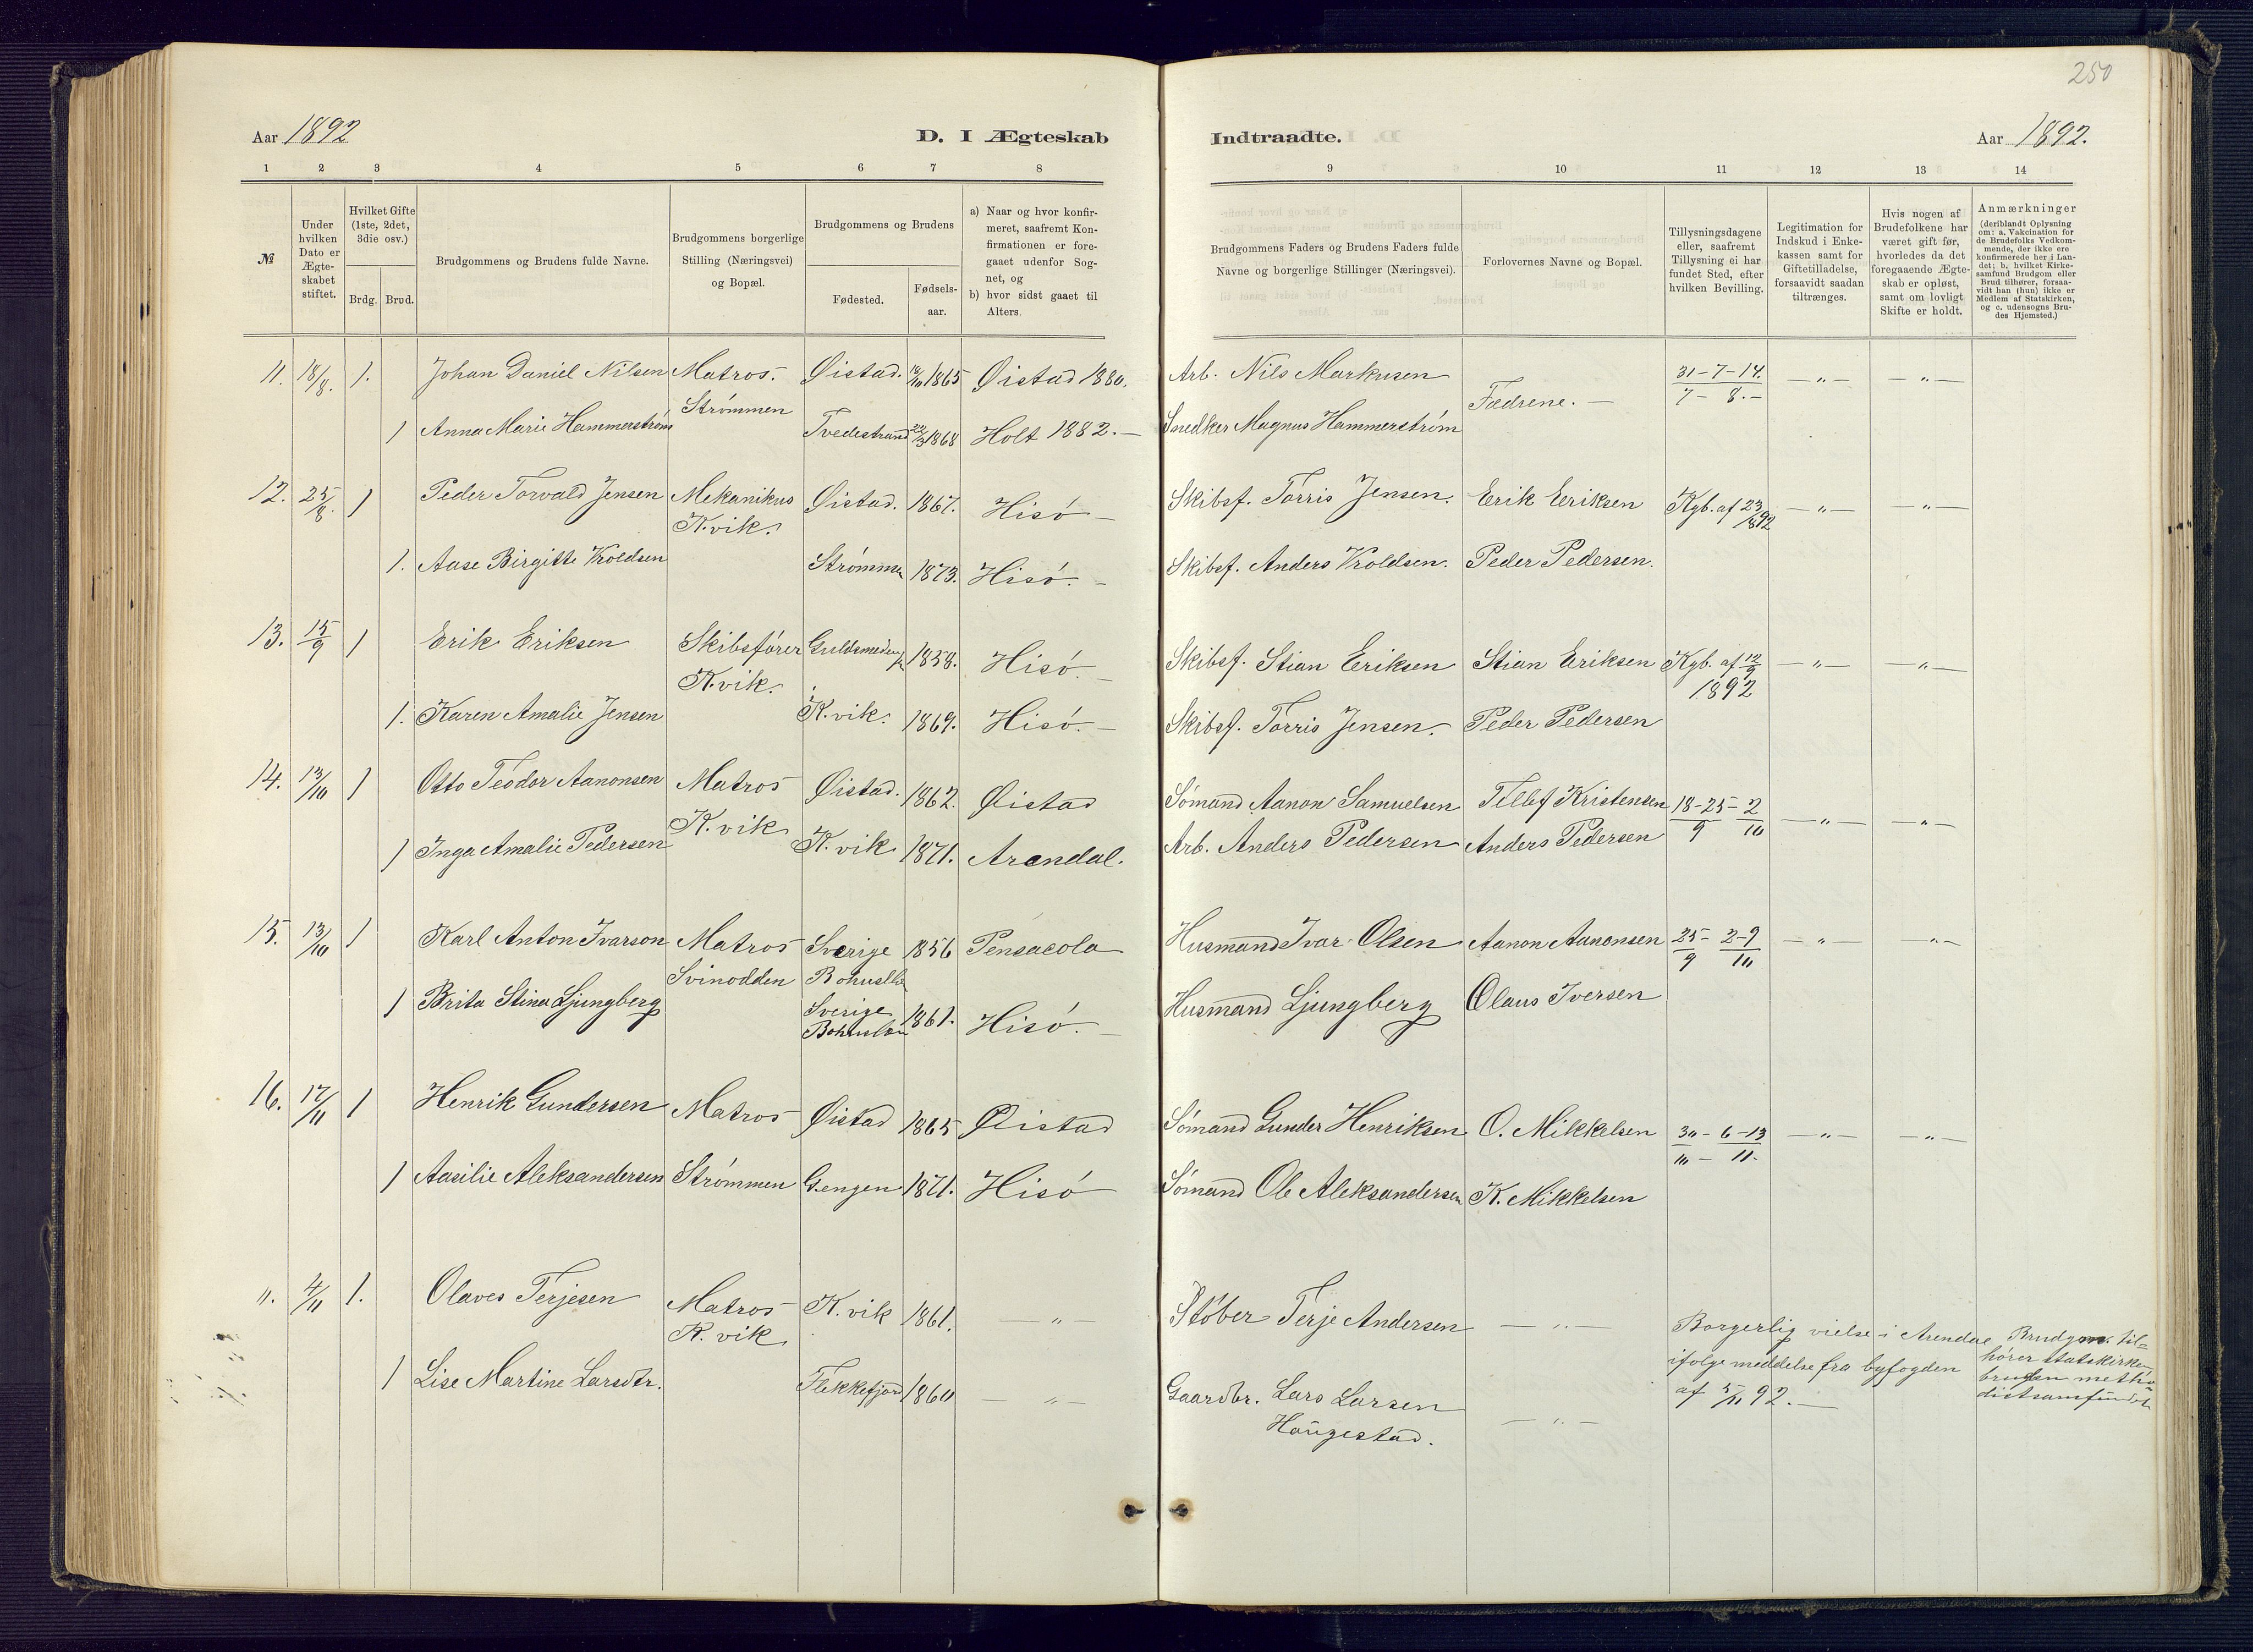 250
Aar 1892
D. I Ægteskab Indtraadte.
Aar 1892.
1 2 3 4 5 6 7 8 9 10 11 12 13 14
№
Under hvilken Dato er Ægte-skabet stiftet.
Hvilket Gifte (1ste, 2det, 3die osv.)
Brdg. Brud.
Brudgommens og Brudens fulde Navne.
Brudgommens borgerlige Stilling (Næringsvei) og Bopæl.
Brudgommens og Brudens
Fødested. Fødsels-aar.
a) Naar og hvor konfir-meret, saafremt Kon-firmationen er fore-gaaet udenfor Sog-net, og
b) hvor sidst gaaet til Alters.
Brudgommens Faders og Brudens Faders fulde Navne og borgerlige Stillinger (Næringsvei).
Forlovernes Navne og Bopæl.
Tillysningsdagene eller, saafremt Tillysning ei har fundet Sted, efter hvilken Bevilling.
Legitimation for Indskud i Enke-kassen samt for Giftetilladelse, forsaavidt saadan tiltrænges.
Hvis nogen af Brudefolkene har været gift før, hvorledes da det foregaaende Ægte-skab er opløst, samt om lovligt Skifte er holdt.
Anmærkninger (deriblandt Oplysning om: a. Vakcination for de Brudefolks Vedkom-mende, der ikke ere konfirmerede her i Lan-det; b. hvilket Kirke-samfund Brudgom eller Brud tilhører, forsaa-vidt han (hun) ikke er Medlem af Statskirken, og c. udensogns Bru-des Hjemsted.)
11. 18/8. 1. Johan Daniel Nilsen Matros. Øistad. 1865 Øistad 1880. Arb. Nils Markusen Fædrene. — 31-7-14. / 7 - 8.- —„— —„—
Strømmen
1 Anna Marie Hammerstrøm Tvedestrand 1868 Holt 1882. — Snedker Magnus Hammerstrøm
12. 25/8. 1 Peder Torvald Jensen Mekanikus Øistad. 1867. Hisø — Skibsf. Torris Jensen. Erik Eriksen Kgb. af 23/8 92 —„— —„—
K.vik.
1. Aase Birgitte Kroldsen Strømmen 1873. Hisø. — Skibsf. Anders Kroldsen. Peder Pedersen.
13. 15/9 1 Erik Eriksen Skibsfører Guldsmeden 1858. Hisø. — Skibsf. Stian Eriksen Stian Eriksen Kgb. af 12/9 1892 —„— —„—
K.vik.
1. Karen Amalie Jensen K.vik. 1869. Hisø. — Skibsf. Torris Jensen. Peder Pedersen
14. 13/10 1 Otto Teodor Aanonsen Matros Øistad. 1862. Øistad Sømand Aanon Samuelsen Tellef Kristensen 18-25-2 / 9 10 —„— —„—
K.vik
1 Inga Amalie Pedersen K.vik 1871. Arendal. Arb. Anders Pedersen Anders Pedersen
15. 13/10 1 Karl Anton Ivarson Matros Sverige 1856 Pensacola Husmand Ivar Olsen Aanon Aanonsen 25- 2-9 / 9 10 —„— „—
Svinodden
1 Brita Stina Ljungberg Sverige Bohuslän 1861. Hisø. — Husmand Ljungberg Olaus Iversen
16. 17/11 1 Henrik Gundersen Matros Øistad 1865 Øistad Sømand Gunder Henriksen O. Mikkelsen 30-6-13 / 10 - 11. —„— —„—
1 Aasilie Aleksandersen Strømmen Gjengen 1871. Hisø Sømand Ole Aleksandersen K. Mikkelsen
„. 4/11 1. Olaves Terjesen Matros K.vik 1861. —„— Støber Terje Andersen —„— Borgerlig vielse i Arendal
K.vik
ifølge meddelse fra byfogden
af 5/11 92. —
Brudgom. til-
hører statskirken
bruden metho-
distsamfundet
1 Lise Martine Larsdtr. Flekkefjord 1860 —„— Gaardbr. Lars Larsen —„—
Haugestad.